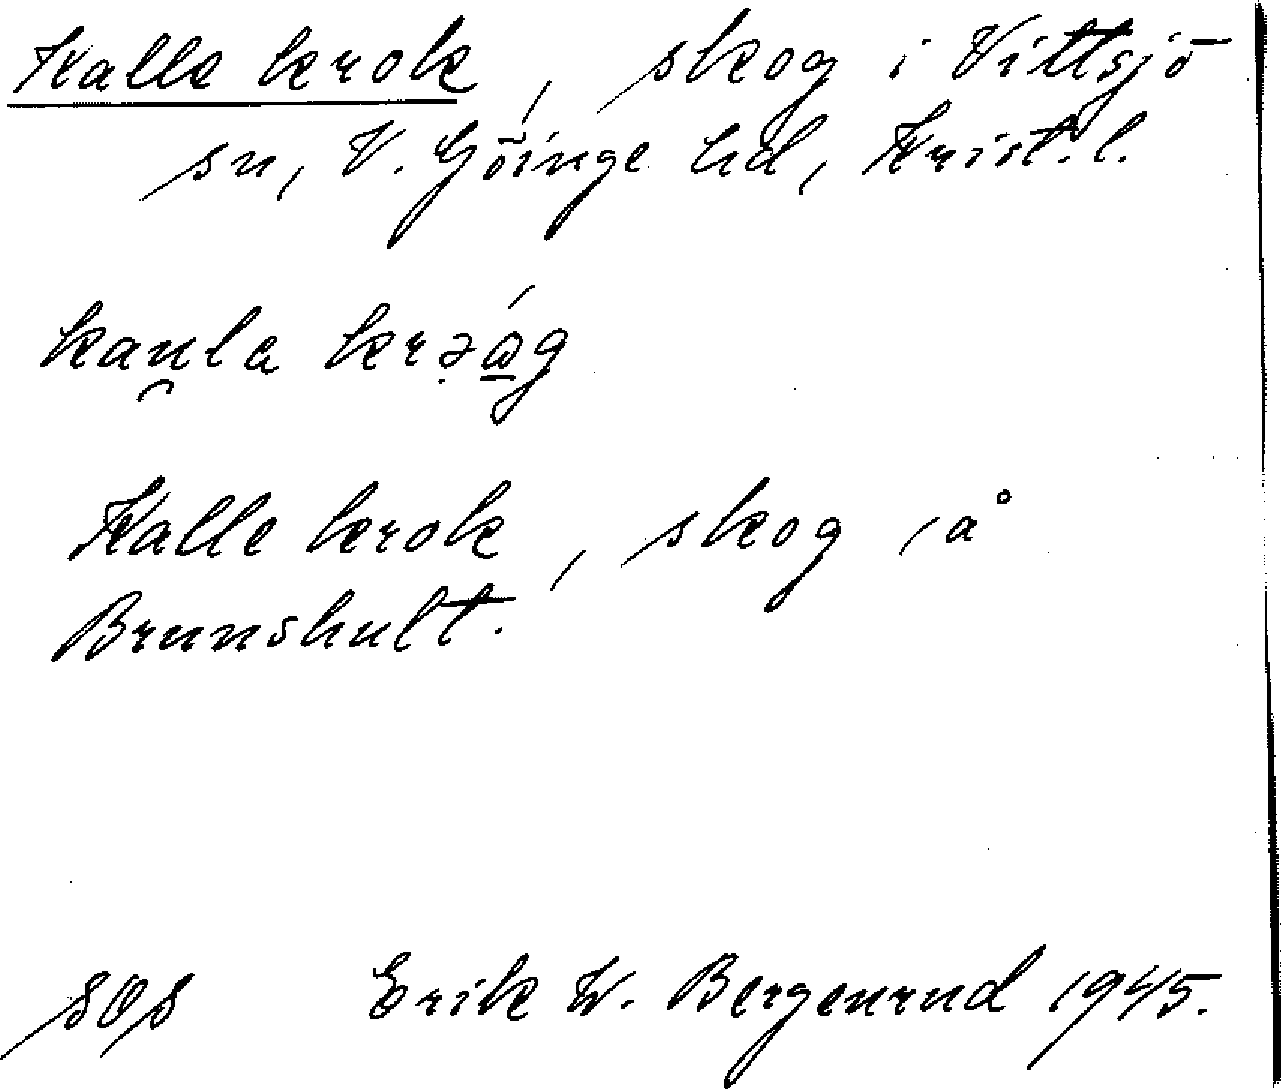 Kalle krok, skog i Vittsjö
sn, V. Göinge hd, Krist. l.
Kalle krok, skog, å
Brunshult.
SOS Erik W. Bergenrud 1945.